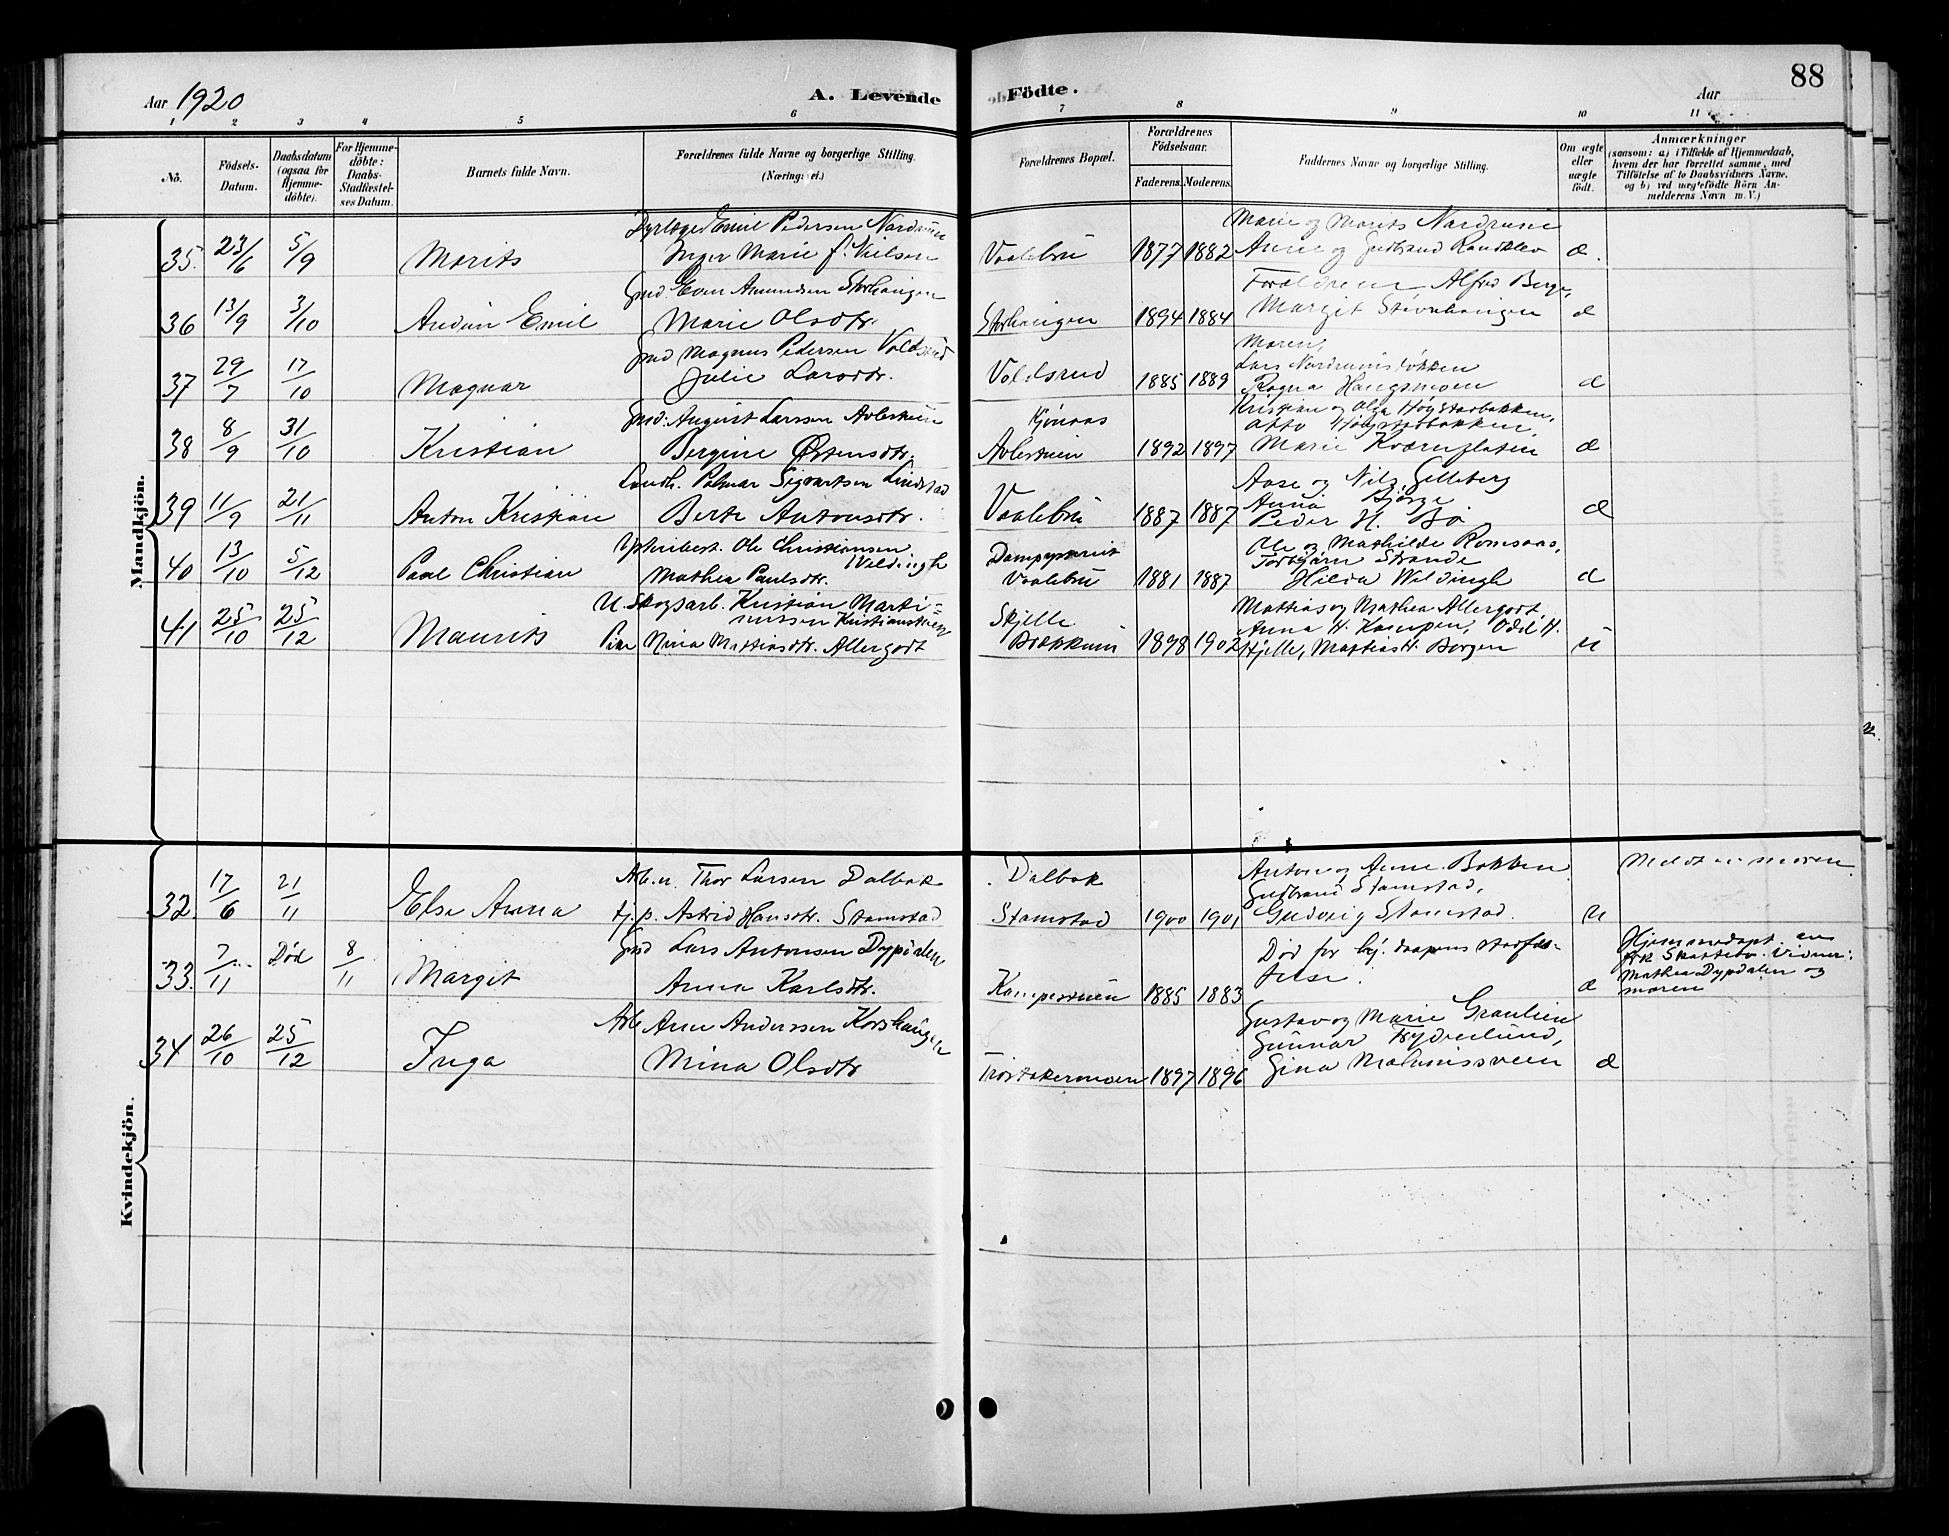 Aar 1920
A. Levende Födte.
Aar
88
1 2 3 4 5 6 7 8 9 10 11
No.
Födsels-Datum.
Daabsdatum (ogsaa for Hjemmedöbte).
For Hjemmedöbte: Daabs-Stadfæstelses Datum.
Barnets fulde Navn.
Forældrenes fulde Navne og borgerlige Stilling.
(Næringsvei.)
Forældrenes Bopæl.
Forældrenes Födselsaar.
Faderens. Moderens.
Faddernes Navne og borgerlige Stilling.
Om ægte eller uægte födt.
Anmærkninger
(saasom: a) i Tilfælde af Hjemmedaab, hvem der har forrettet samme, med Tilföielse af to Daabsvidners Navne, og b) ved uægtefödte Börn Anmelderens Navn m. V.)
Mandkjön.
35. 23/6 5/9 Morits
Dyrlæge Emil Pedersen Nordrum
Inger Marie f. Nielsen
Vaalebru 1877 1882
Marie og Morits Nordrum
Anne og Gudbrand Randklev
æ.
36 13/9 3/10 Emil
Gmd. Even Amundsen Storhaugen
Marie Olsdtr.
Storhaugen 1894 1884
Forældrene Alfred Berge,
Margit
æ
37 29/7 17/10 Magnar
Gmd Magnus Pedersen Voldsrud
Julie Larsdtr.
Voldsrud 1885 1889
Maren,
Lars
Ragna Haugsmoen
æ
38 8/9 31/10 Kristian
Gmd. August Larssen
Bergine Østensdtr.
Kjønaas
1892 1897
Kristian og Olga Høystadbakken,
Otto Høystadbakken,
Marie Kværnflaten
æ
39 11/9 21/11 Anton Kristian
Landh. Palmar Sigvartsen Lindstad
Berte Antonsdtr.
Vaalebru 1887 1887
Aase og Nils Gilleberg
Anna Bjørge
Peder H. Bø
æ
40 13/10 5/12 Paul Christian
Ole Christiansen Wildingh
Mathea Paulsdtr.
Vaalebru 1881 1887
Ole og Mathilde Romsaas,
Torbjørn Strande
Hilda Wildingh
æ
41 25/10 25/12 Maurits
U. Skogsarb. Kristian Martinussen Kristianstuen
Pike Nina Mattiasdtr. Allergodt
Skjelle
Brækkum 1898 1902
Mattias og Mathea Allergodt
Anna H. Kampen, Odd H.
Hjelle, Mattias H. Borgen
u
Kvindekjön.
32. 17/6 21/11 Else Anna
Arb. u. Thor Larsen Dalbak
tj. p. Astrid Hansdtr. Stamstad
Dalbak
Stamstad 1900 1901
Anton og Anne Bakken
Gudbrand Stamstad,
Gudveig Stamstad.
u
Meldt av moren
33. 7/11 Død 8/11 Margit
Gmd Lars Antonsen Dypdalen
Anna Karlsdtr.
Kampestuen 1885 1883
Død før bej. daapens stadfæstelse.
æ
Hjemmedøpt av
Vidner:
Mathea Dypdalen og
moren
34 26/10 25/12 Inga
Arb Arne Anderssen Korshaugen
Mina Olsdtr
Trostakermoen 1897 1896
Gustav og Marie Graulien
Gunnar Frydenlund,
Gina Malunissveen
æ